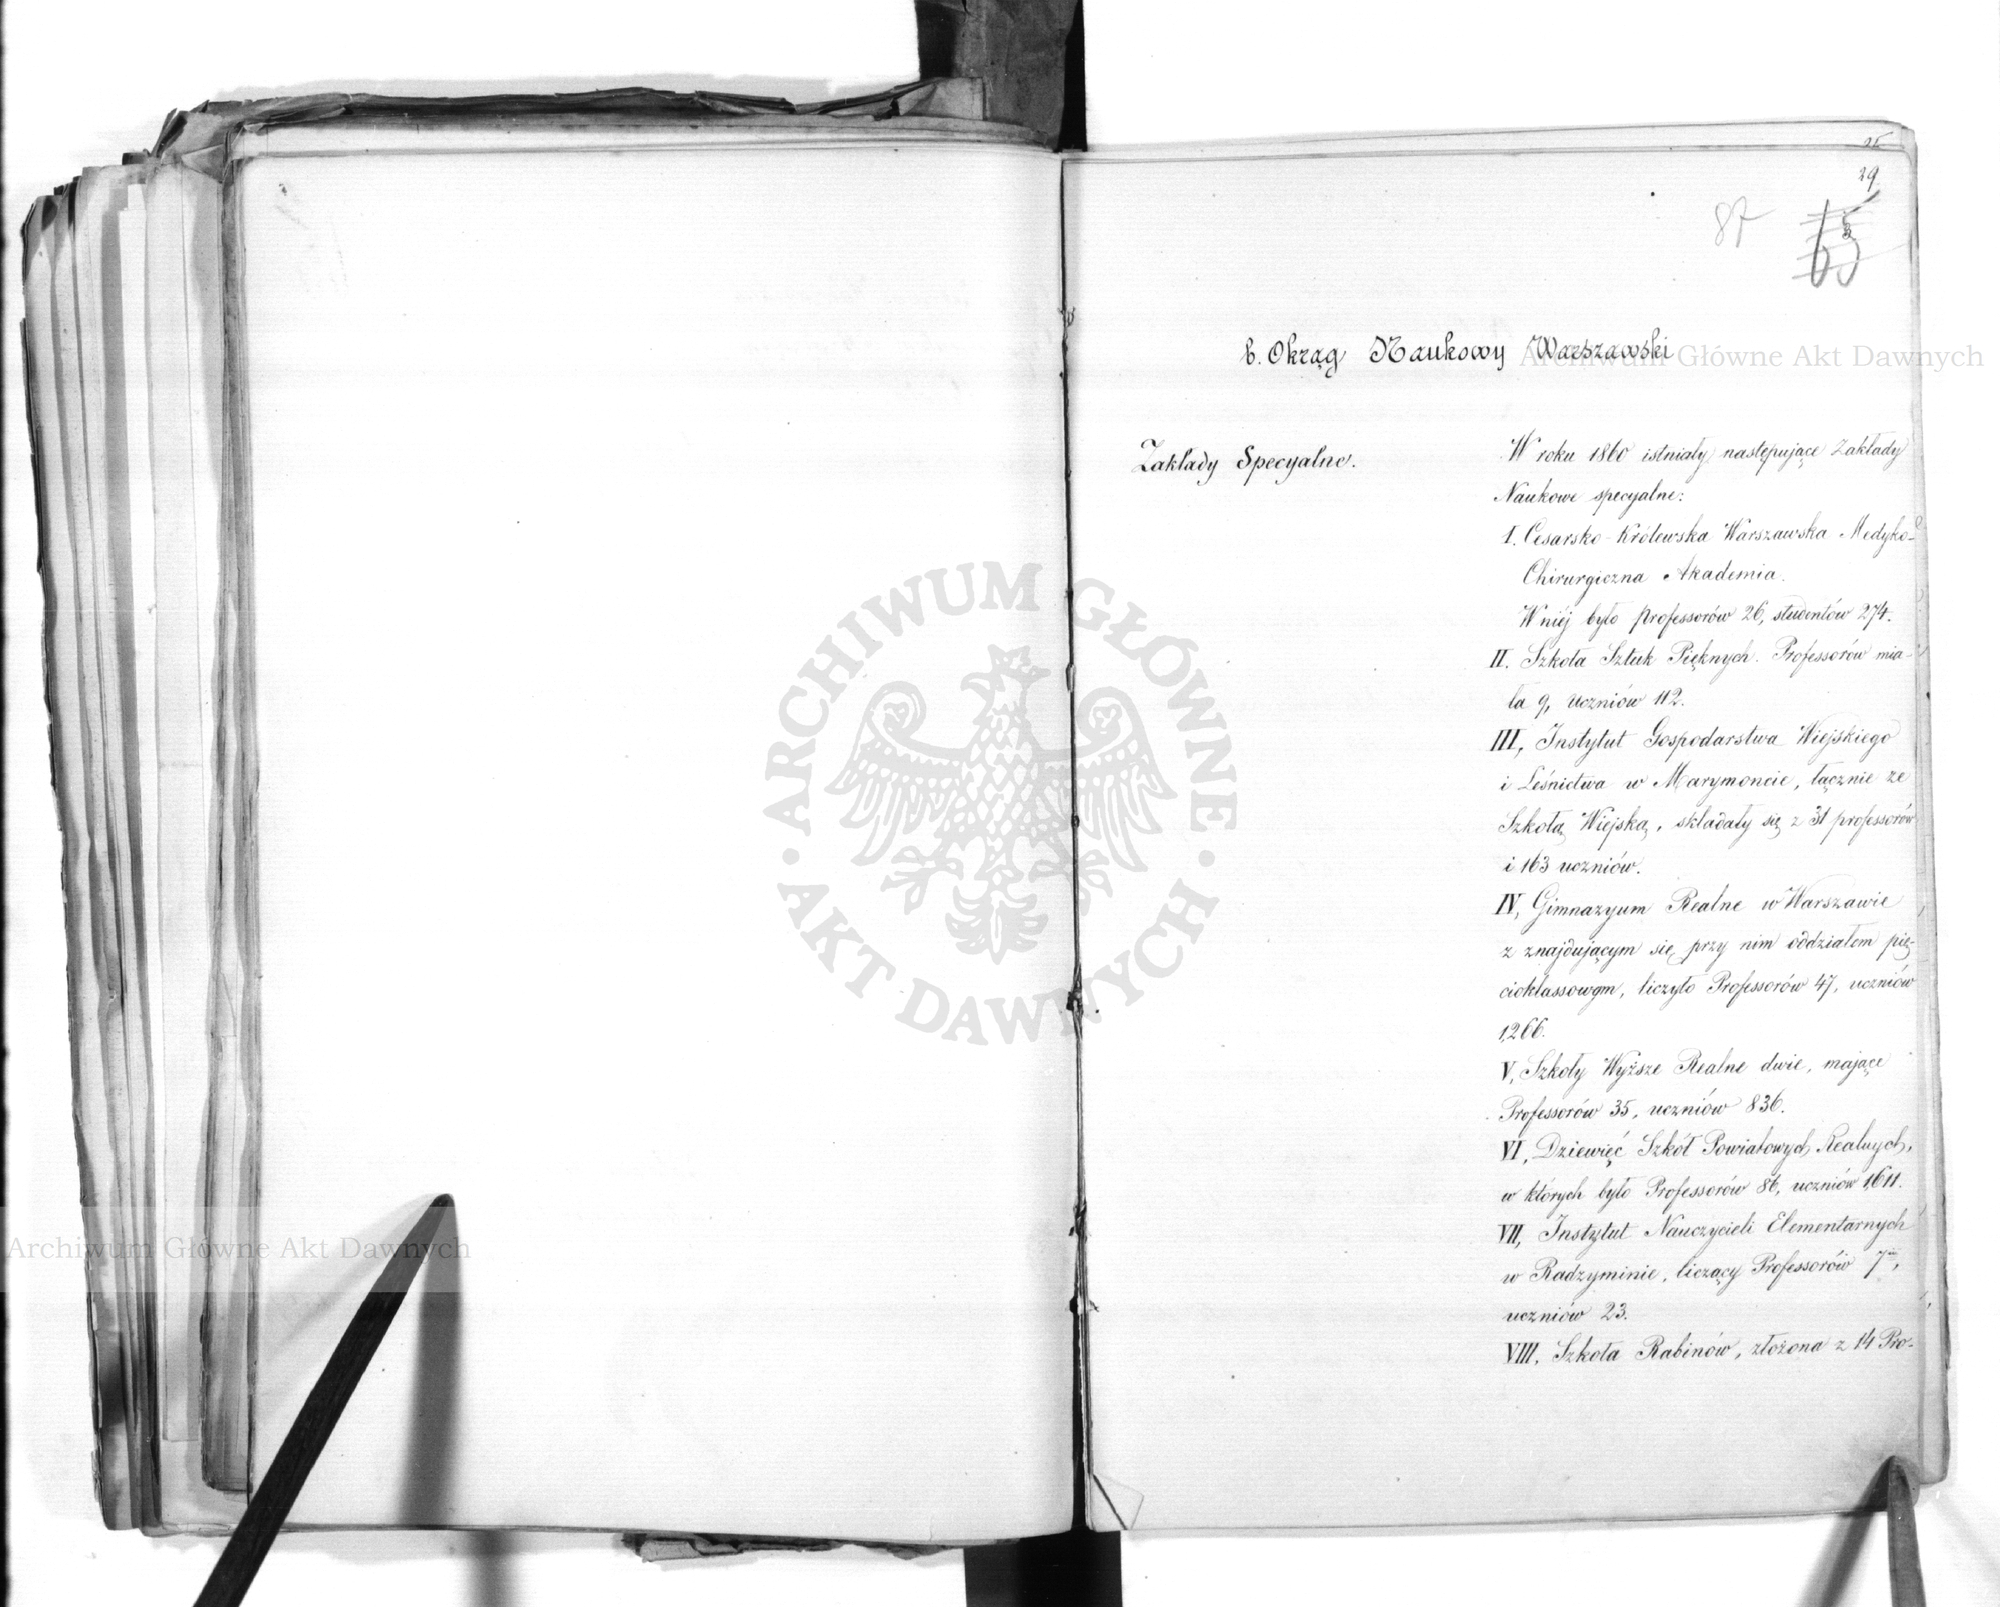 29
87
b. Okrąg Naukowy Warszawski
Archiwum Główne Akt Dawnych
Zakłady Specyalne.
W roku 1860 istniały następujące Zakłady
Naukowe specyalne:
I. Cesarsko-Królewska Warszawska Medyko-
Chirurgiczna Akademia.
W niéj było professorów 26, studentów 274.
II. Szkoła Sztuk Pięknych. Professorów mia-
ła 9, Uczniów 112.
III, Instytut Gospodarstwa Wiejskiego
i Leśnictwa w Marymoncie, łącznie ze
Szkołą Wiejską, składały się z 31 professorów
i 163 uczniów.
IV, Gimnazyum Realne w Warszawie
z znajdującym się przy nim oddziałem pię-
cioklassowym, liczyło Professorów 47, uczniów
1,266.
V, Szkoły Wyższe Realne dwie, mające
Professorów 35, uczniów 836.
VI, Dziewięć Szkół Powiatowych Realnych,
w których było Professorów 86, uczniów 1,611.
VII, Instytut Nauczycieli Elementarnych
w Radzyminie, liczący Professorów 7,
uczniów 23.
VIII. Szkoła Rabinów, złożona z 14 Pro-
ARCHIWUM GŁÓWNE
AKT DAWNYCH
Archiwum Główne Akt Dawnych